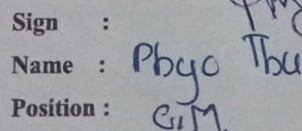 Sign :
Name : Phyo Thu
Position : G.M.